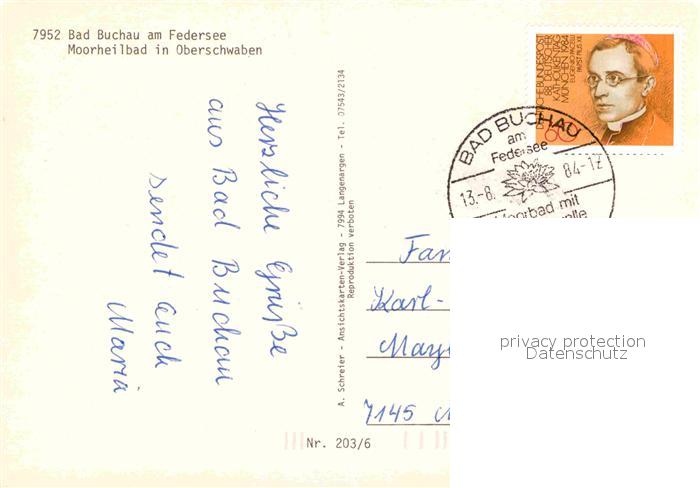 7952 Bad Buchau am Federsee
Moorheilbad in Oberschwaben
Herzliche Grüße
aus Bad Buchau
sendet Euch
Maria
A. Schreier - Ansichtskarten-Verlag - 7994 Langenargen - Tel. 07543/2134
Reproduktion verboten
DEUTSCHE BUNDESPOST
88. DEUTSCHER
KATHOLIKENTAG
MÜNCHEN 1984
EUGENIO PACELLI
PAPST PIUS XII.
60
BAD BUCHAU
am
Federsee
13.-8. 84-12
Moorbad mit
Fam
Karl-
7145
privacy protection
Datenschutz
Nr. 203/6